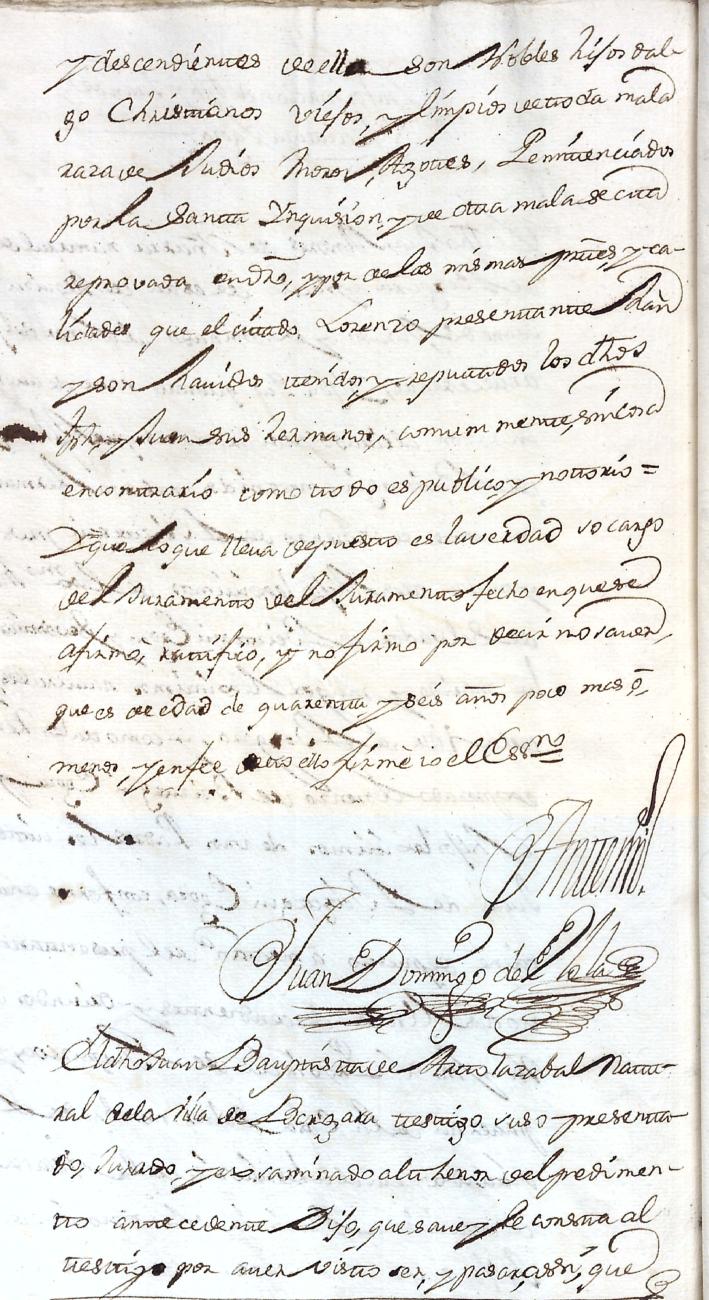 y descendienttes de ella son Nobles hijosdal-
go Christtianos viejos, y limpios de ttoda mala
raza de Judios Moros, Agottes, Penittenciados
por la Santta Ynquision, y de otra mala sectta
reprovada en dro, y por de las mismas prttes, y ca-
lidades que el cittado Lorenzo presenttantte
y son havidos ttenidos, y reputtados los dhos
Jph, y Juan sus hermanos, comun mentte, sin cosa
en conttrario como ttodo es publico, y nottorio =
Y que lo que lleva depuestto es la verdad so cargo
del Juramentto del Juramentto fecho en que se
afirmó, rattificó, y no firmó por decir no saver,
que es de edad de quarentta y seis años poco mas ó,
menos, y en fee de ello firmé io el Essno
Antte mi
Juan Domingo de
El dho Juan Bapttistta de Artolazabal Nattu-
ral de la villa de Bergara testtigo suso presentta-
do, Jurado, y examinado al thenor del pedimen-
tto antte cedentte Dijo, que save y le constta al
testtigo por aver visto ser, y pasar, asi, que